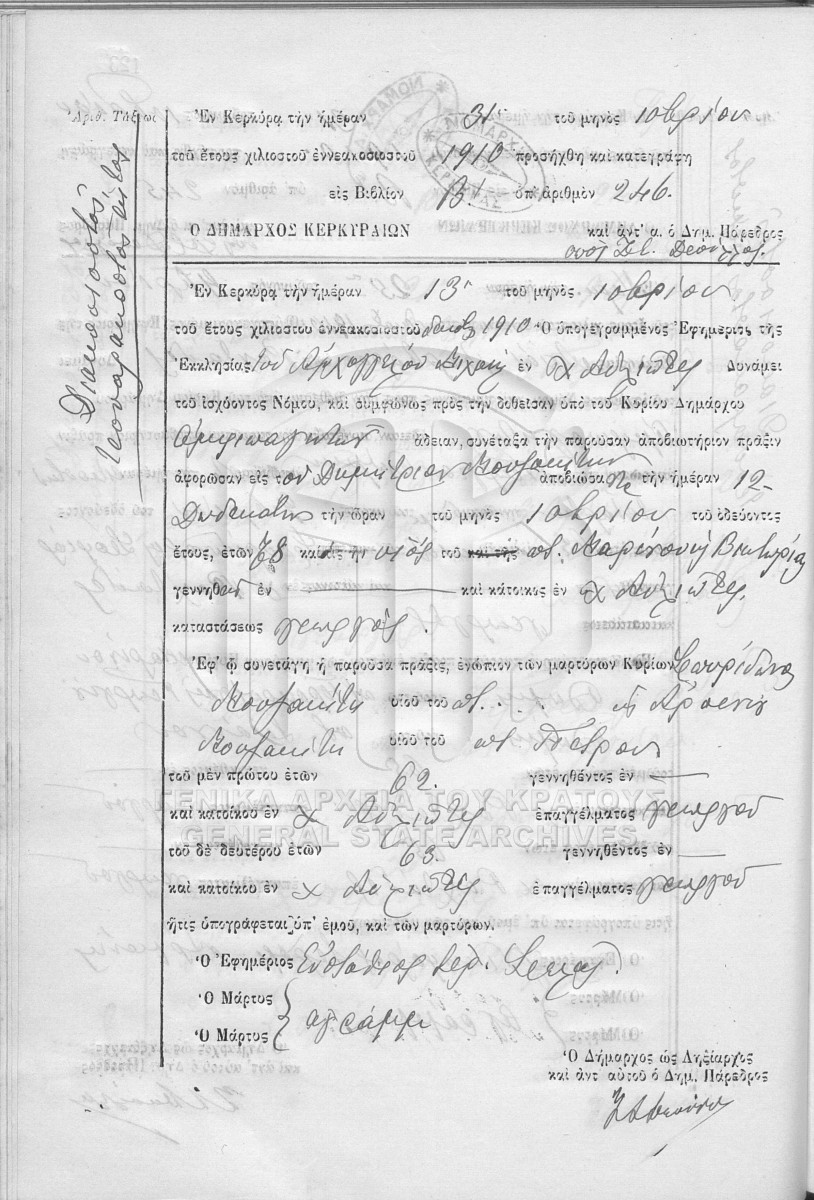 Ἀριθ. Τάξεως
Διακοσιοστὸς
τεσσαρακοστὸς ἕκτος
Ἐν Κερκύρᾳ τὴν ἡμέραν 31 τοῦ μηνὸς 10βρίου
τοῦ ἔτους χιλιοστοῦ ἐννεακοσιοστοῦ 1910 προσήχθη καὶ κατεγράφη
εἰς Βιβλίον Β' ὑπ' ἀριθμὸν 246.
Ὁ ΔΗΜΑΡΧΟΣ ΚΕΡΚΥΡΑΙΩΝ καὶ ἀντ' α. ὁ Δημ. Πάρεδρος
Ἐν Κερκύρᾳ τὴν ἡμέραν 13 τοῦ μηνὸς 10βρίου
τοῦ ἔτους χιλιοστοῦ ἐννεακοσιοστοῦ δεκάτου 1910 Ὁ ὑπογεγραμμένος Ἐφημέριος τῆς
Ἐκκλησίας τοῦ Ἀρχαγγέλου Μιχαὴλ ἐν χ Αὐλιῶτες Δυνάμει
τοῦ ἰσχύοντος Νόμου, καὶ συμφώνως πρὸς τὴν δοθεῖσαν ὑπὸ τοῦ Κυρίου Δημάρχου
ἄδειαν, συνέταξα τὴν παροῦσαν ἀποβιωτήριον πρᾶξιν
ἀφορῶσαν εἰς τὸν Δημήτριον Κουζακίτην ἀποβιώσαντα τὴν ἡμέραν 12-
Δωδεκάτην τὴν ὥραν τοῦ μηνὸς 10βρίου τοῦ ὁδεύοντος
ἔτους, ἐτῶν 78 καὶ τίς ἦν υἱὸς τοῦ καὶ τῆς ποτ. Μαρίνου
γεννηθεὶς ἐν καὶ κάτοικος ἐν χ Αὐλιῶτες.
καταστάσεως γεωργός.
Ἐφ' ᾧ συνετάγη ἡ παροῦσα πρᾶξις, ἐνώπιον τῶν μαρτύρων Κυρίων Σπυρίδωνος
Κουζακίτη υἱοῦ τοῦ ποτ. . . . Ἀρσενίου
Κουζακίτη υἱοῦ τοῦ ποτ Πέτρου
τοῦ μὲν πρώτου ἐτῶν 62. γεννηθέντος ἐν —
καὶ κατοίκου ἐν χ Αὐλιῶτες ἐπαγγέλματος γεωργοῦ
τοῦ δὲ δευτέρου ἐτῶν 63. γεννηθέντος ἐν —
καὶ κατοίκου ἐν χ Αὐλιῶτες ἐπαγγέλματος γεωργοῦ
ἥτις ὑπογράφεται ὑπ' ἐμοῦ, καὶ τῶν μαρτύρων.
Ὁ Ἐφημέριος Εὐστάθιος
Ὁ Μάρτυς
Ὁ Μάρτυς ἀγράμμ
Ὁ Δήμαρχος ὡς Ληξίαρχος
καὶ ἀντ αὐτοῦ ὁ Δημ. Πάρεδρος
ΓΕΝΙΚΑ ΑΡΧΕΙΑ ΤΟΥ ΚΡΑΤΟΥΣ
GENERAL STATE ARCHIVES